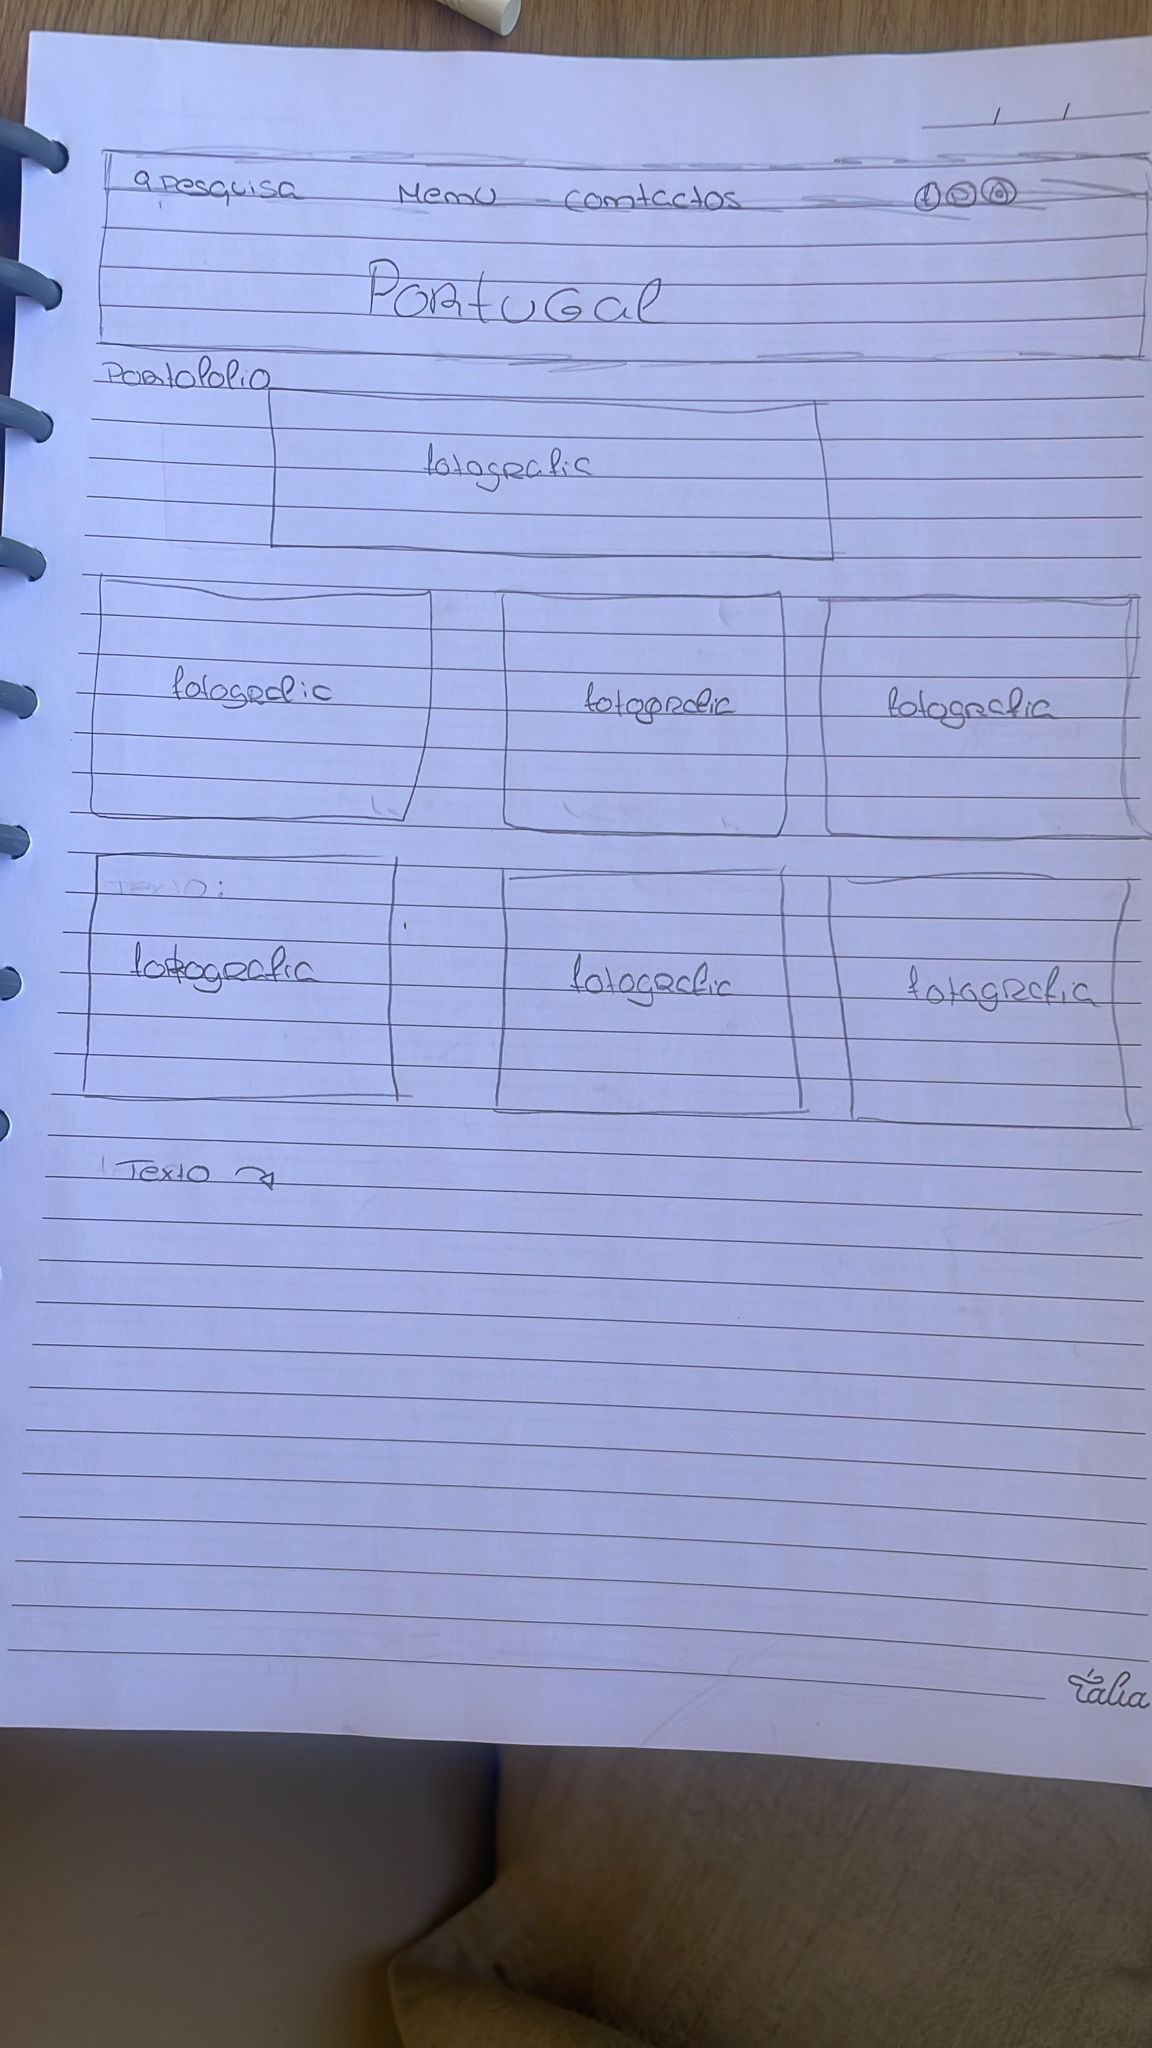 pesquisa Menu contactos
Portugal
Portofolio
fotografia
fotografia fotografia fotografia
Texto:
fotografia fotografia fotografia
Texto
Tália